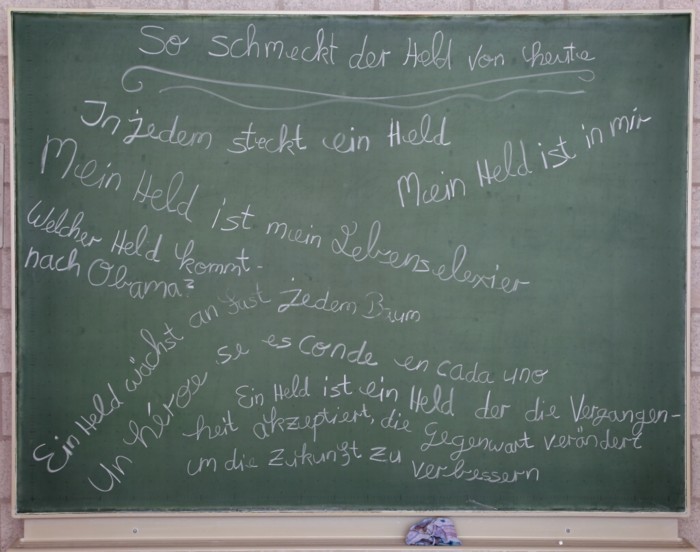 So schmeckt der Held von heute
In jedem steckt ein Held
Mein Held ist in mir
Mein Held ist mein Lebenselexier
Welcher Held kommt
nach Obama?
Ein Held wächst an fast jedem Baum
Un héroe se es conde en cada uno
Ein Held ist ein Held der die Vergangen-
heit akzeptiert, die Gegenwart verändert
um die Zukunft zu verbessern